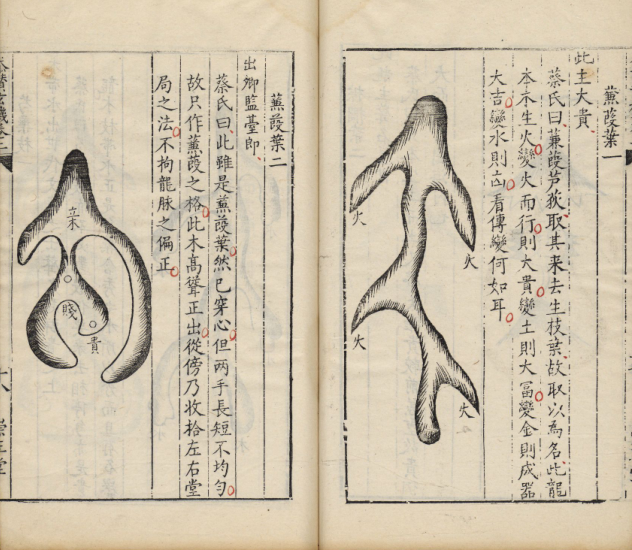 蒹葭葉一
此主大貴
蔡氏曰蒹葭芦荻取其来去生枝葉故取以為名此龍
本木生火變火而行則大貴變土則大冨變金則成器
大吉變水則凶看傳變何如耳
火
火
火
火
蒹葭葉二
出卿監臺郎
蔡氏曰此雖是蒹葭葉然已穿心但两手長短不均匀
故只作蒹葭之格此木高聳正出從傍乃收拾左右堂
局之法不拘龍脉之偏正
来
賤
貴
十八
崇正堂